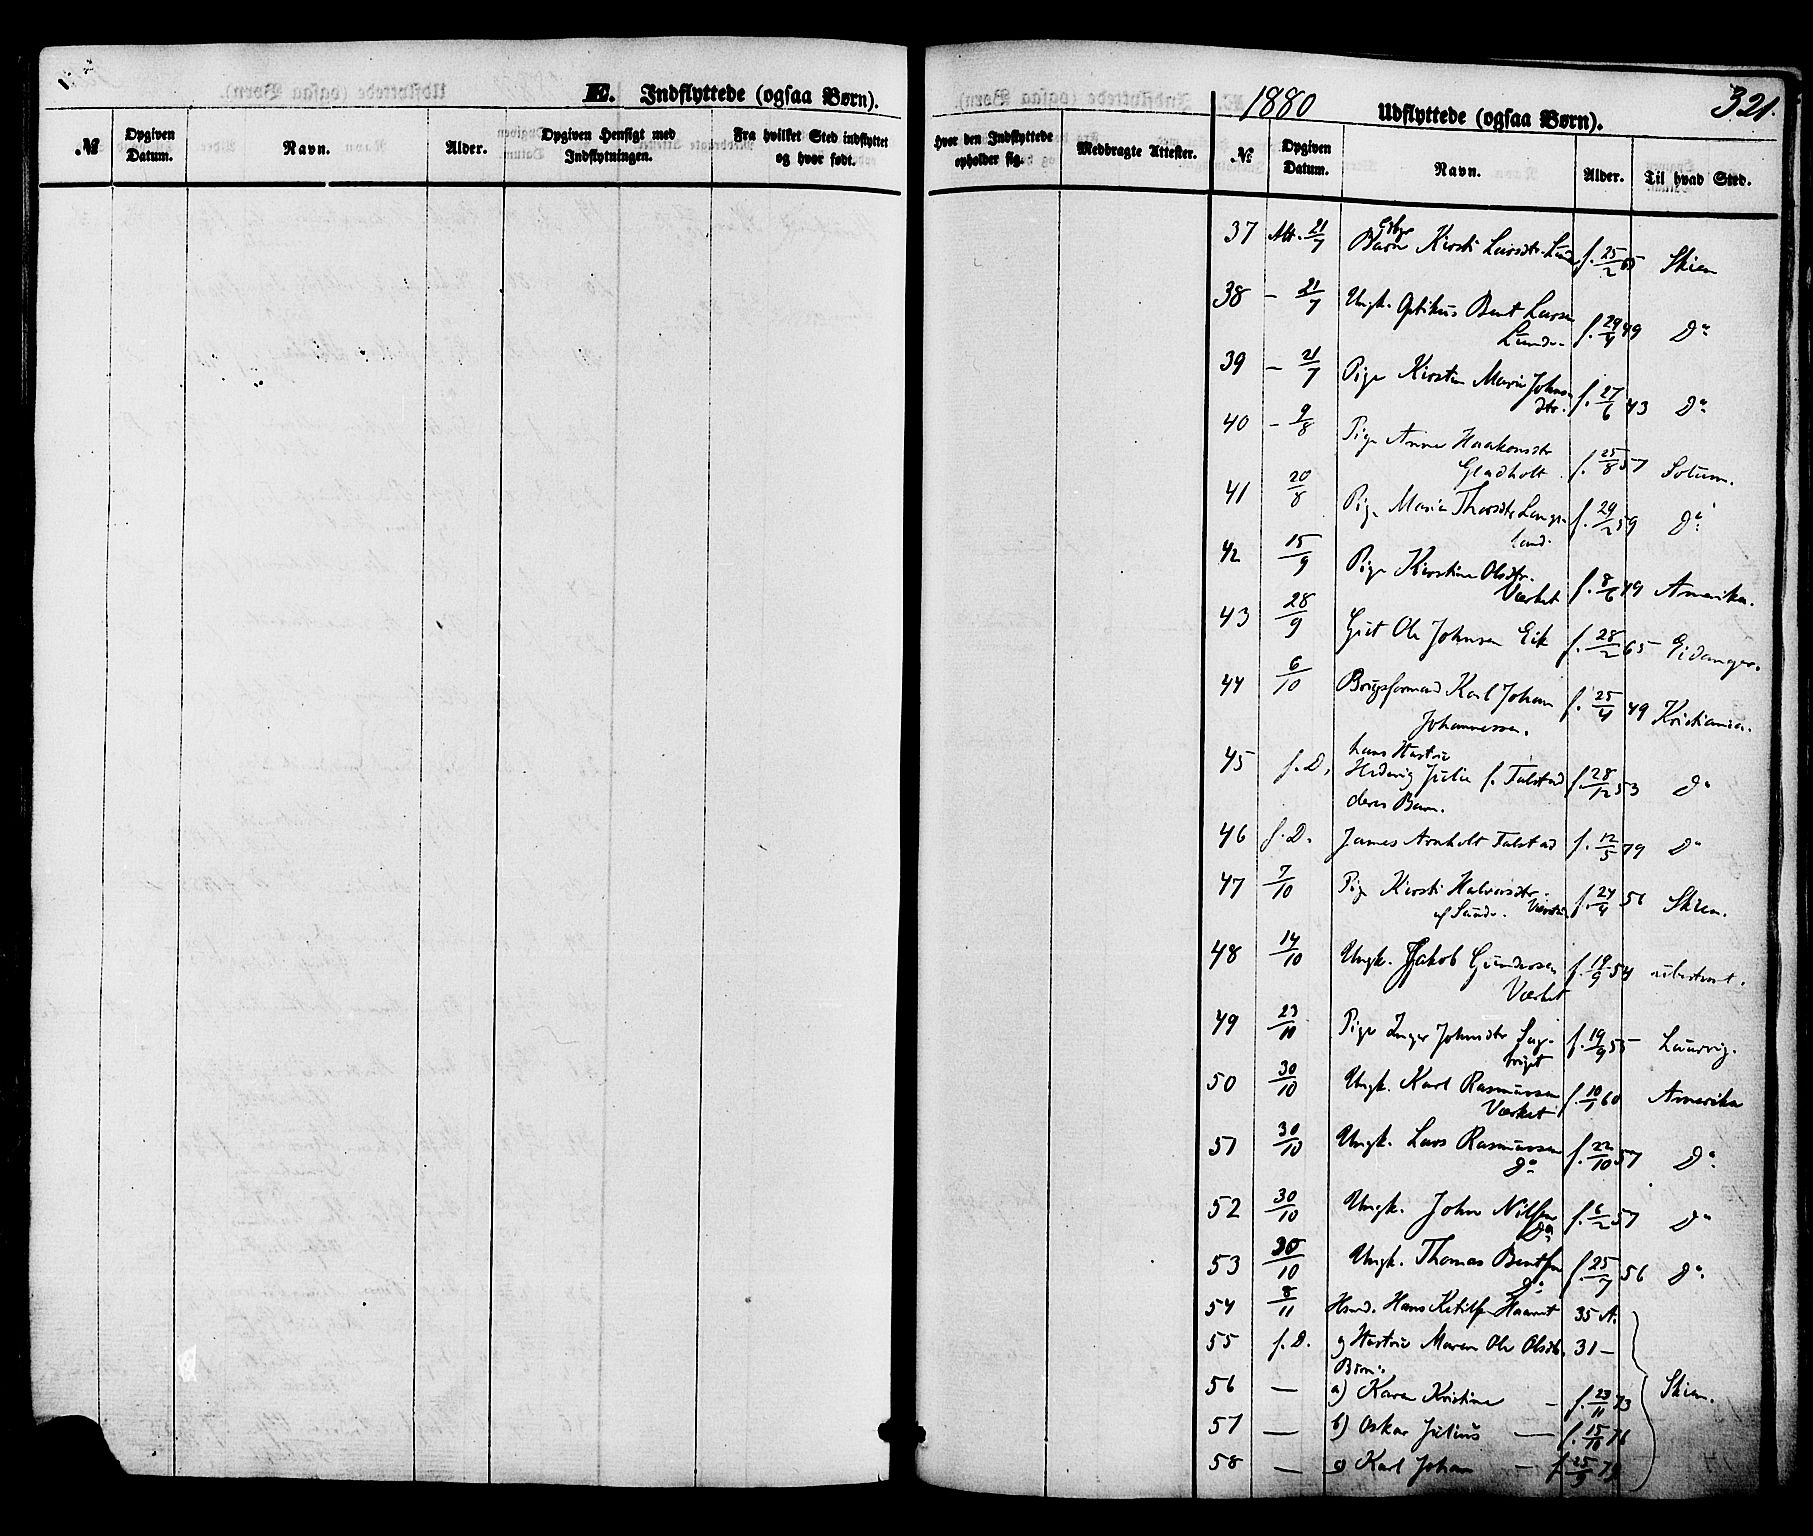 E. Indflyttede (ogsaa Børn).
№ Opgiven Datum. Navn. Alder. Opgiven Hensigt med Indflytningen. Fra hvilket Sted indflyttet og hvor født.
Hvor den Indflyttede opholder sig. Medbragte Attester.
1880 Udflyttede (ogsaa Børn). 321.
№ Opgiven Datum. Navn. Alder. Til hvad Sted.
37 Att. 21/7 Barn Kirsti Larsdtr. Lunde f. 25/2 65 Skien
38 – 21/7 Ungk. Optikus Bent Larsen
Lunde. f. 29/4 49 Do
39 – 21/7 Pige Kirsten Marie Johns
dtr. f. 27/6 43 Do
40 – 9/8 Pige Anne Haakonsdtr
Gladholt f. 25/8 57 Solum.
41 20/8 Pige Maria Thorsdtr Lange
land. f. 29/2 59 Do
42 15/9 Pige Kirstine Olsdtr.
Værket f. 8/6 49 Amerika.
43 28/9 Gut Ole Johnsen Eik f. 28/2 65 Eidanger.
44 6/10 Brugsformand Karl Johan
Johannessen. f. 25/4 49 Kristiania.
45 s. D. hans Hustru
Hedevig Julie f. Falstad f. 28/12 53 Do
deres Barn.
46 s. D. James Arnholt Falstad f. 12/5 79 Do
47 7/10 Pige Kirsti Halvorsdtr.
af Sunde. f. 24/4 56 Skien.
48 14/10 Ungk. Jakob Gundersen
Værket f. 19/9 54 ubestemt.
49 23/10 Pige Inger Johnsdtr Sag-
bruget f. 19/9 55 Laurvig.
50 30/10 Ungk. Karl Rasmussen
Værket f. 10/1 60 Amerika
51 30/10 Ungk. Lars Rasmussen
Do f. 22/10 57 Do
52 30/10 Ungk. John Nilsen
Do f. 6/2 57 Do
53 30/10 Ungk. Thomas Bentsen
Do f. 25/7 56 Do
54 8/11 Hmd. Hans Ketilsen 35 A.
55 s. D. og Hustru Maren Ole Olsdtr. 31 –
Børn:
56 — a) Karen Kristine – f. 23/11 73 Skien.
57 — b) Oskar Julius — f. 15/10 76
58 — c) Karl Johan – f. 25/9 79